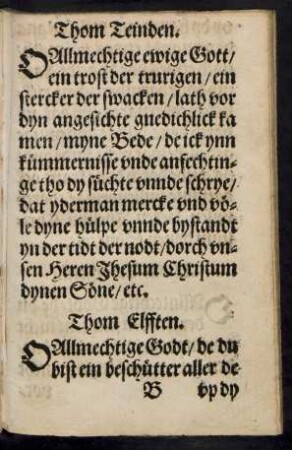 Thom Teinden.
OAllmechtige ewige Gott/
ein trost der trurigen/ein
stercker der swacken/lath vor
dyn angesichte gnedichlick ka
men/myne Bede/de ick ynn
kümmernisse vnde anfechtin-
ge tho dy süchte vnnde schrye/
dat yderman mercke vnd vö-
le dyne hülpe vnnde bystandt
yn der tidt der nodt/dorch vn-
sen Heren Jhesum Christum
dynen Söne/etc.
Thom Elfften.
OAllmechtige Godt/de du
bist ein beschütter aller de-
B vp dy